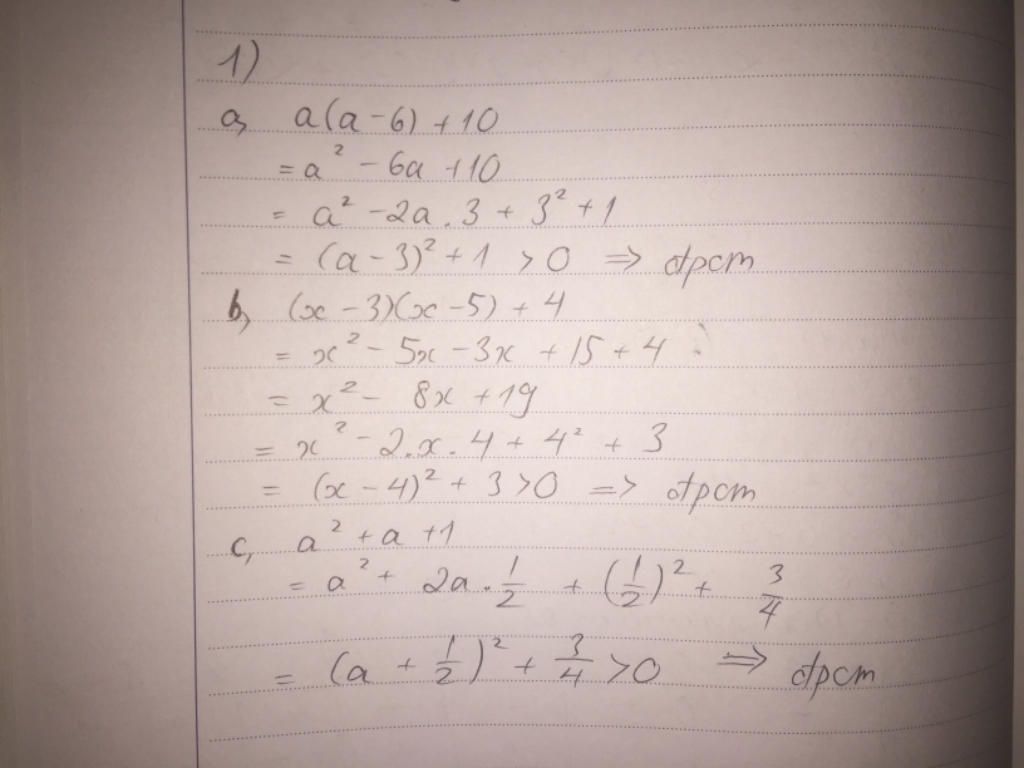 1)
a, a(a-6) + 10
= a² - 6a + 10
= a² - 2a . 3 + 3² + 1
= (a - 3)² + 1 > 0 => đpcm
b, (x - 3)(x - 5) + 4
= x² - 5x - 3x + 15 + 4
= x² - 8x + 19
= x² - 2.x.4 + 4² + 3
= (x - 4)² + 3 > 0 => đpcm
c, a² + a + 1
= a² + 2a . 1/2 + (1/2)² + 3/4
= (a + 1/2)² + 3/4 > 0 => đpcm